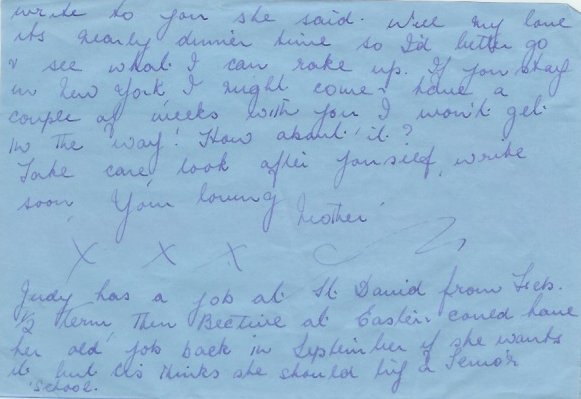 write to you she said. Well my love
its nearly dinner time so I'd better go
& see what I can rake up. If you stay
in New York I might come & have a
couple of weeks with you I won't get
in the way! How about it?
Take care, look after yourself, write
soon, Your loving Mother
X X X
Judy has a job at St David from Feb.
1/2 term, then Beetive at Easter, could have
her old job back in September if she wants
it but thinks she should try a Senior
School.